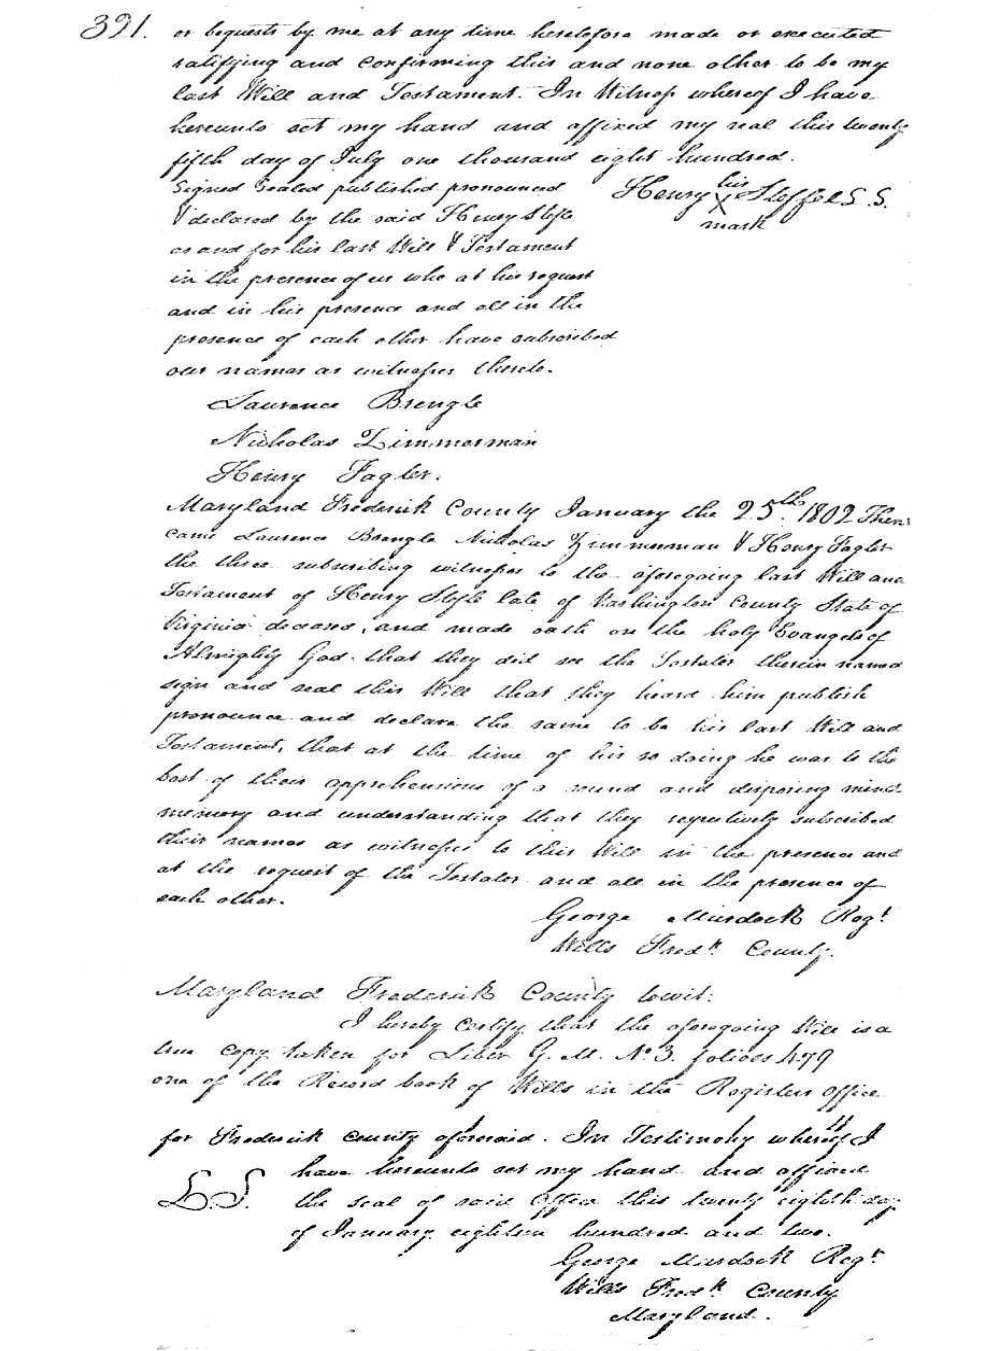 391.
or bequests by me at any time heretofore made or executed
ratifying and confirming this and none other to be my
last Will and Testament. In Witness whereof I have
hereunto set my hand and affixed my seal this twenty
fifth day of July one thousand eight hundred.
Signed Sealed published pronounced
& declared by the said Henry Stefle
as and for his last Will & Testament
in the presence of us who at his request
and in his presence and all in the
presence of each other have subscribed
our names as witnesses thereto.
his
Henry X Steffel S.S.
mark
Laurence Brengle
Nicholas Zimmerman
Henry Fagler.
Maryland Frederick County January the 25th. 1802 Then
came Laurence Brengle Nicholas Zimmerman & Henry Fagler
the three subscribing witnesses to the aforegoing last Will and
Testament of Henry Stefle late of Washington County State of
Virginia deceased, and made oath on the holy Evangels of
Almighty God. that they did see the Testator therein named
sign and seal this Will that they heard him publish
pronounce and declare the same to be his last Will and
Testament, that at the time of his so doing he was to the
best of their apprehensions of a sound and disposing mind
memory and understanding that they respectively subscribed
their names as witnesses to this Will in the presence and
at the request of the Testator and all in the presence of
each other.
George Murdock Regt
Wills Fredk County.
Maryland Frederick County towit:
I hereby Certify that the aforegoing Will is a
true Copy taken for Liber G. M. No 3. folioes 479
one of the Record book of Wills in the Registers office
for Frederick County aforesaid. In Testimony whereof I
have hereunto set my hand and affixed
L.S. the seal of said Office this twenty eighth day
of January eighteen hundred and two.
George Murdock Regr
Wills Fredk County
Maryland.